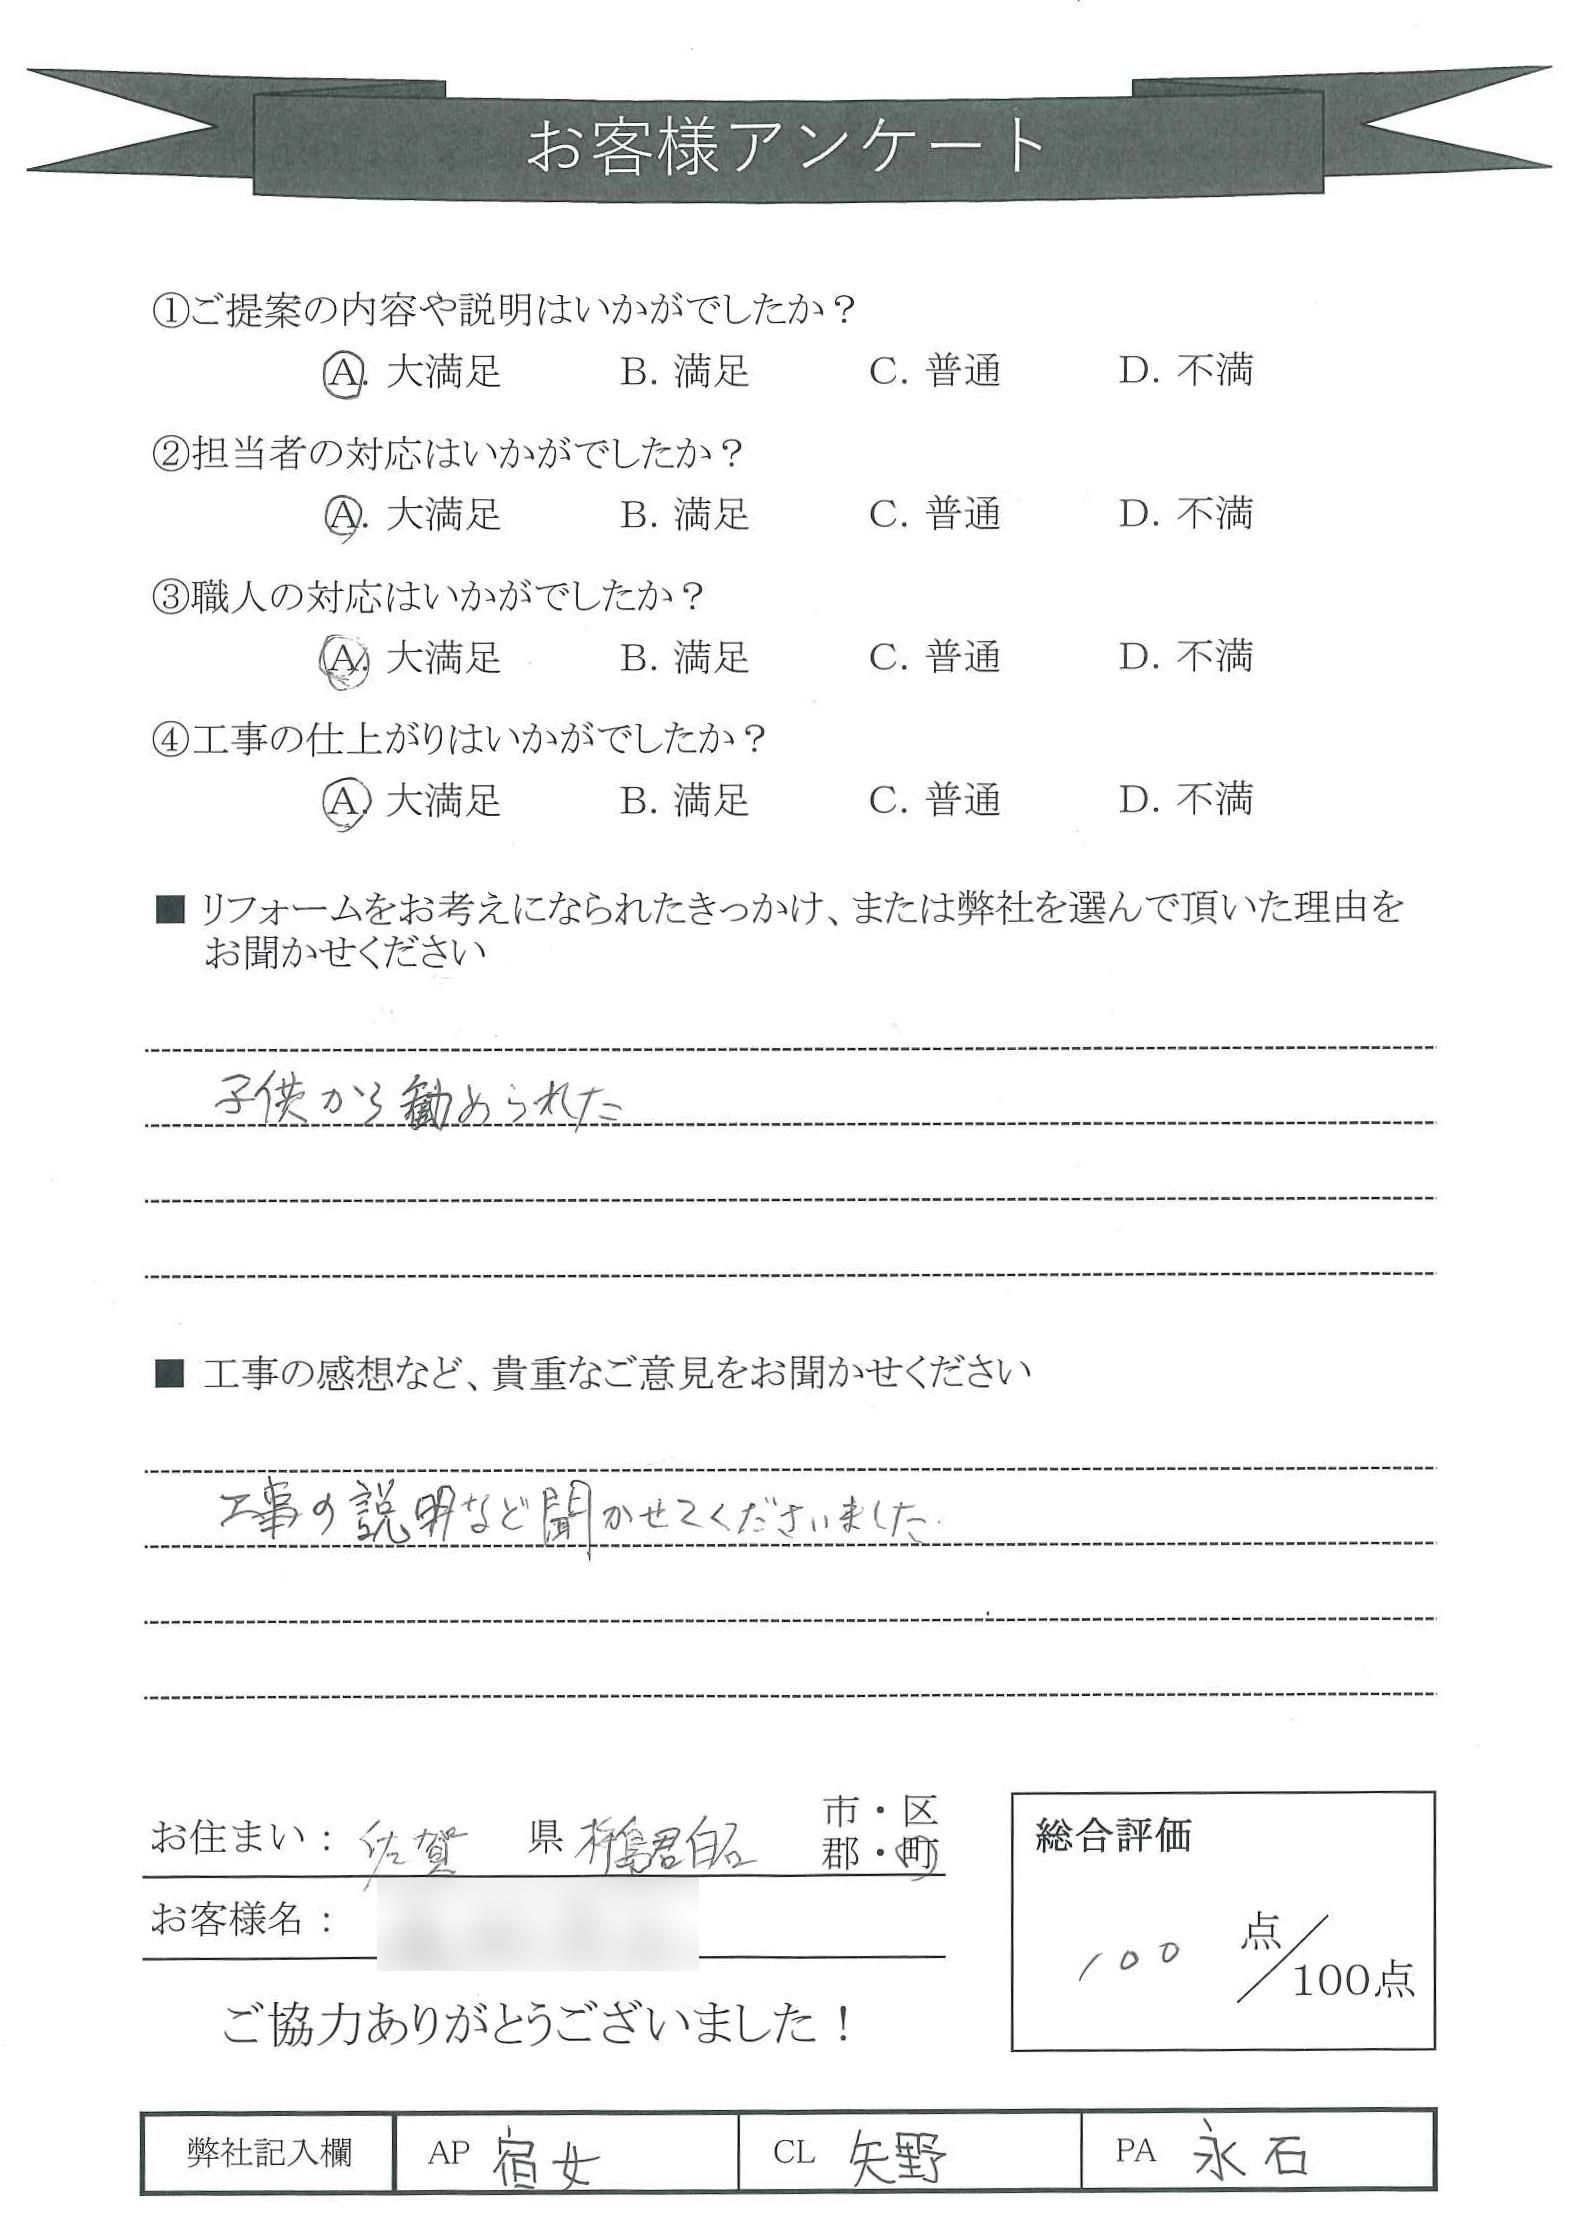 お客様アンケート
①ご提案の内容や説明はいかがでしたか？
A. 大満足 B. 満足 C. 普通 D. 不満
②担当者の対応はいかがでしたか？
A. 大満足 B. 満足 C. 普通 D. 不満
③職人の対応はいかがでしたか？
A. 大満足 B. 満足 C. 普通 D. 不満
④工事の仕上がりはいかがでしたか？
A. 大満足 B. 満足 C. 普通 D. 不満
■ リフォームをお考えになられたきっかけ、または弊社を選んで頂いた理由を
お聞かせください
子供から勧められた
■ 工事の感想など、貴重なご意見をお聞かせください
工事の説明など聞かせてくださいました.
市・区
お住まい： 佐賀 県 杵島君白石 郡・町
お客様名：
総合評価
100 点／100点
ご協力ありがとうございました！
弊社記入欄 AP 宿女 CL 矢野 PA 永石